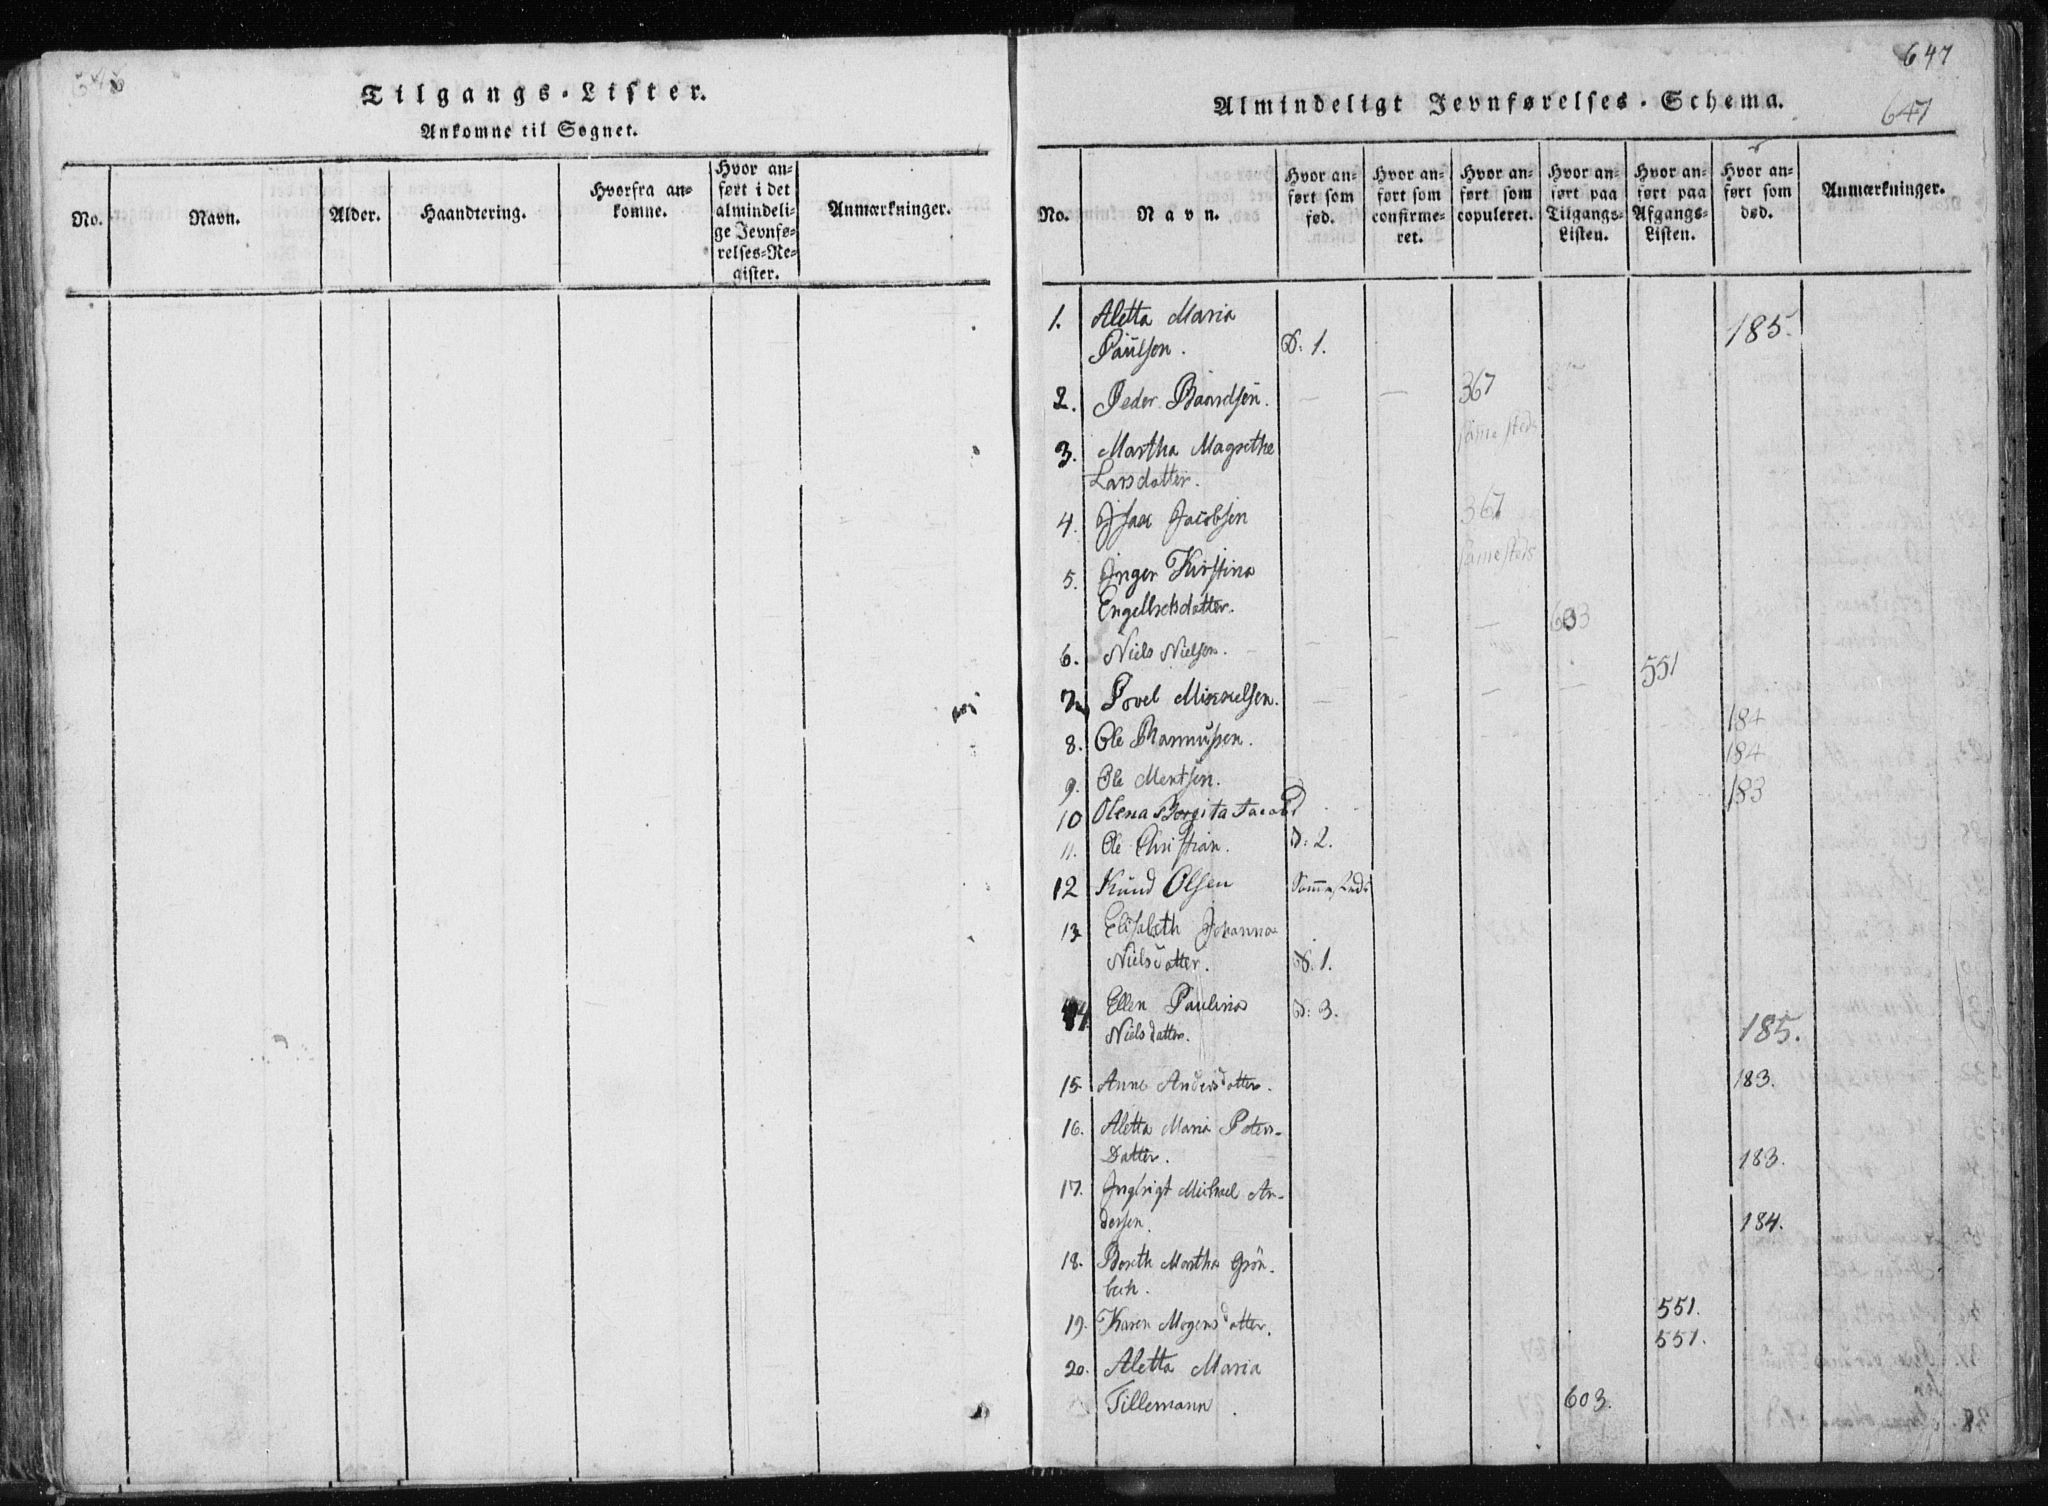 646
Tilgangs-Lister.
Ankomne til Sognet.
No.
Navn.
Alder.
Haandtering.
Hvorfra an-
komne.
Hvor an-
ført i det
almindeli-
ge Jevnfø-
relses-Re-
gister.
Anmærkninger.
647
Almindeligt Jevnførelses-Schema.
647
No.
Navn.
Hvor an-
ført som
fød.
Hvor an-
ført som
confirme-
ret.
Hvor an-
ført som
copuleret.
Hvor an-
ført paa
Tilgangs-
Listen.
Hvor an-
ført paa
Afgangs-
Listen.
Hvor an-
ført som
død.
Anmærkninger.
1. Aletta Maria
Paulsen. D: 1. 185.
2. Peder Baardsen. — — 367
3. Martha Magrethe samesteds
Larsdatter.
4. Isac Jacobsen 367
5. Inger Kirstina samesteds
Engelbretsdatter.
6. Niels Nielsen. — — — 603
7. Povel Mikkelsen. — — — 551
8. Ole Rasmussen. 184
9. Ole Mentsen. 184
10 Olena Borgita Jacobsd 183
11. Ole Christian. D: 2.
12 Knud Olsen Sammesteds
13 Elisabeth Johanna
Nielsdatter. D. 1.
14 Ellen Paulina D: 3.
Nielsdatter. 185.
15. Anne Andersdatter. 183.
16. Aletta Maria Peters-
Datter. 183.
17. Ingbrigt Michael An-
dersen. 184.
18. Bereth Martha Grön-
bech. 551.
19. Karen Mogensdatter. 551.
20. Aletta Maria
Tillemann. 603.